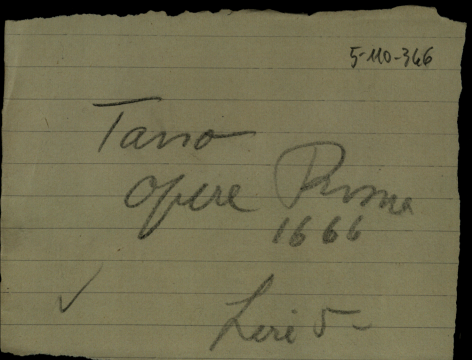 5-110-366
Tasso
opere Roma
1666
Lire 5-